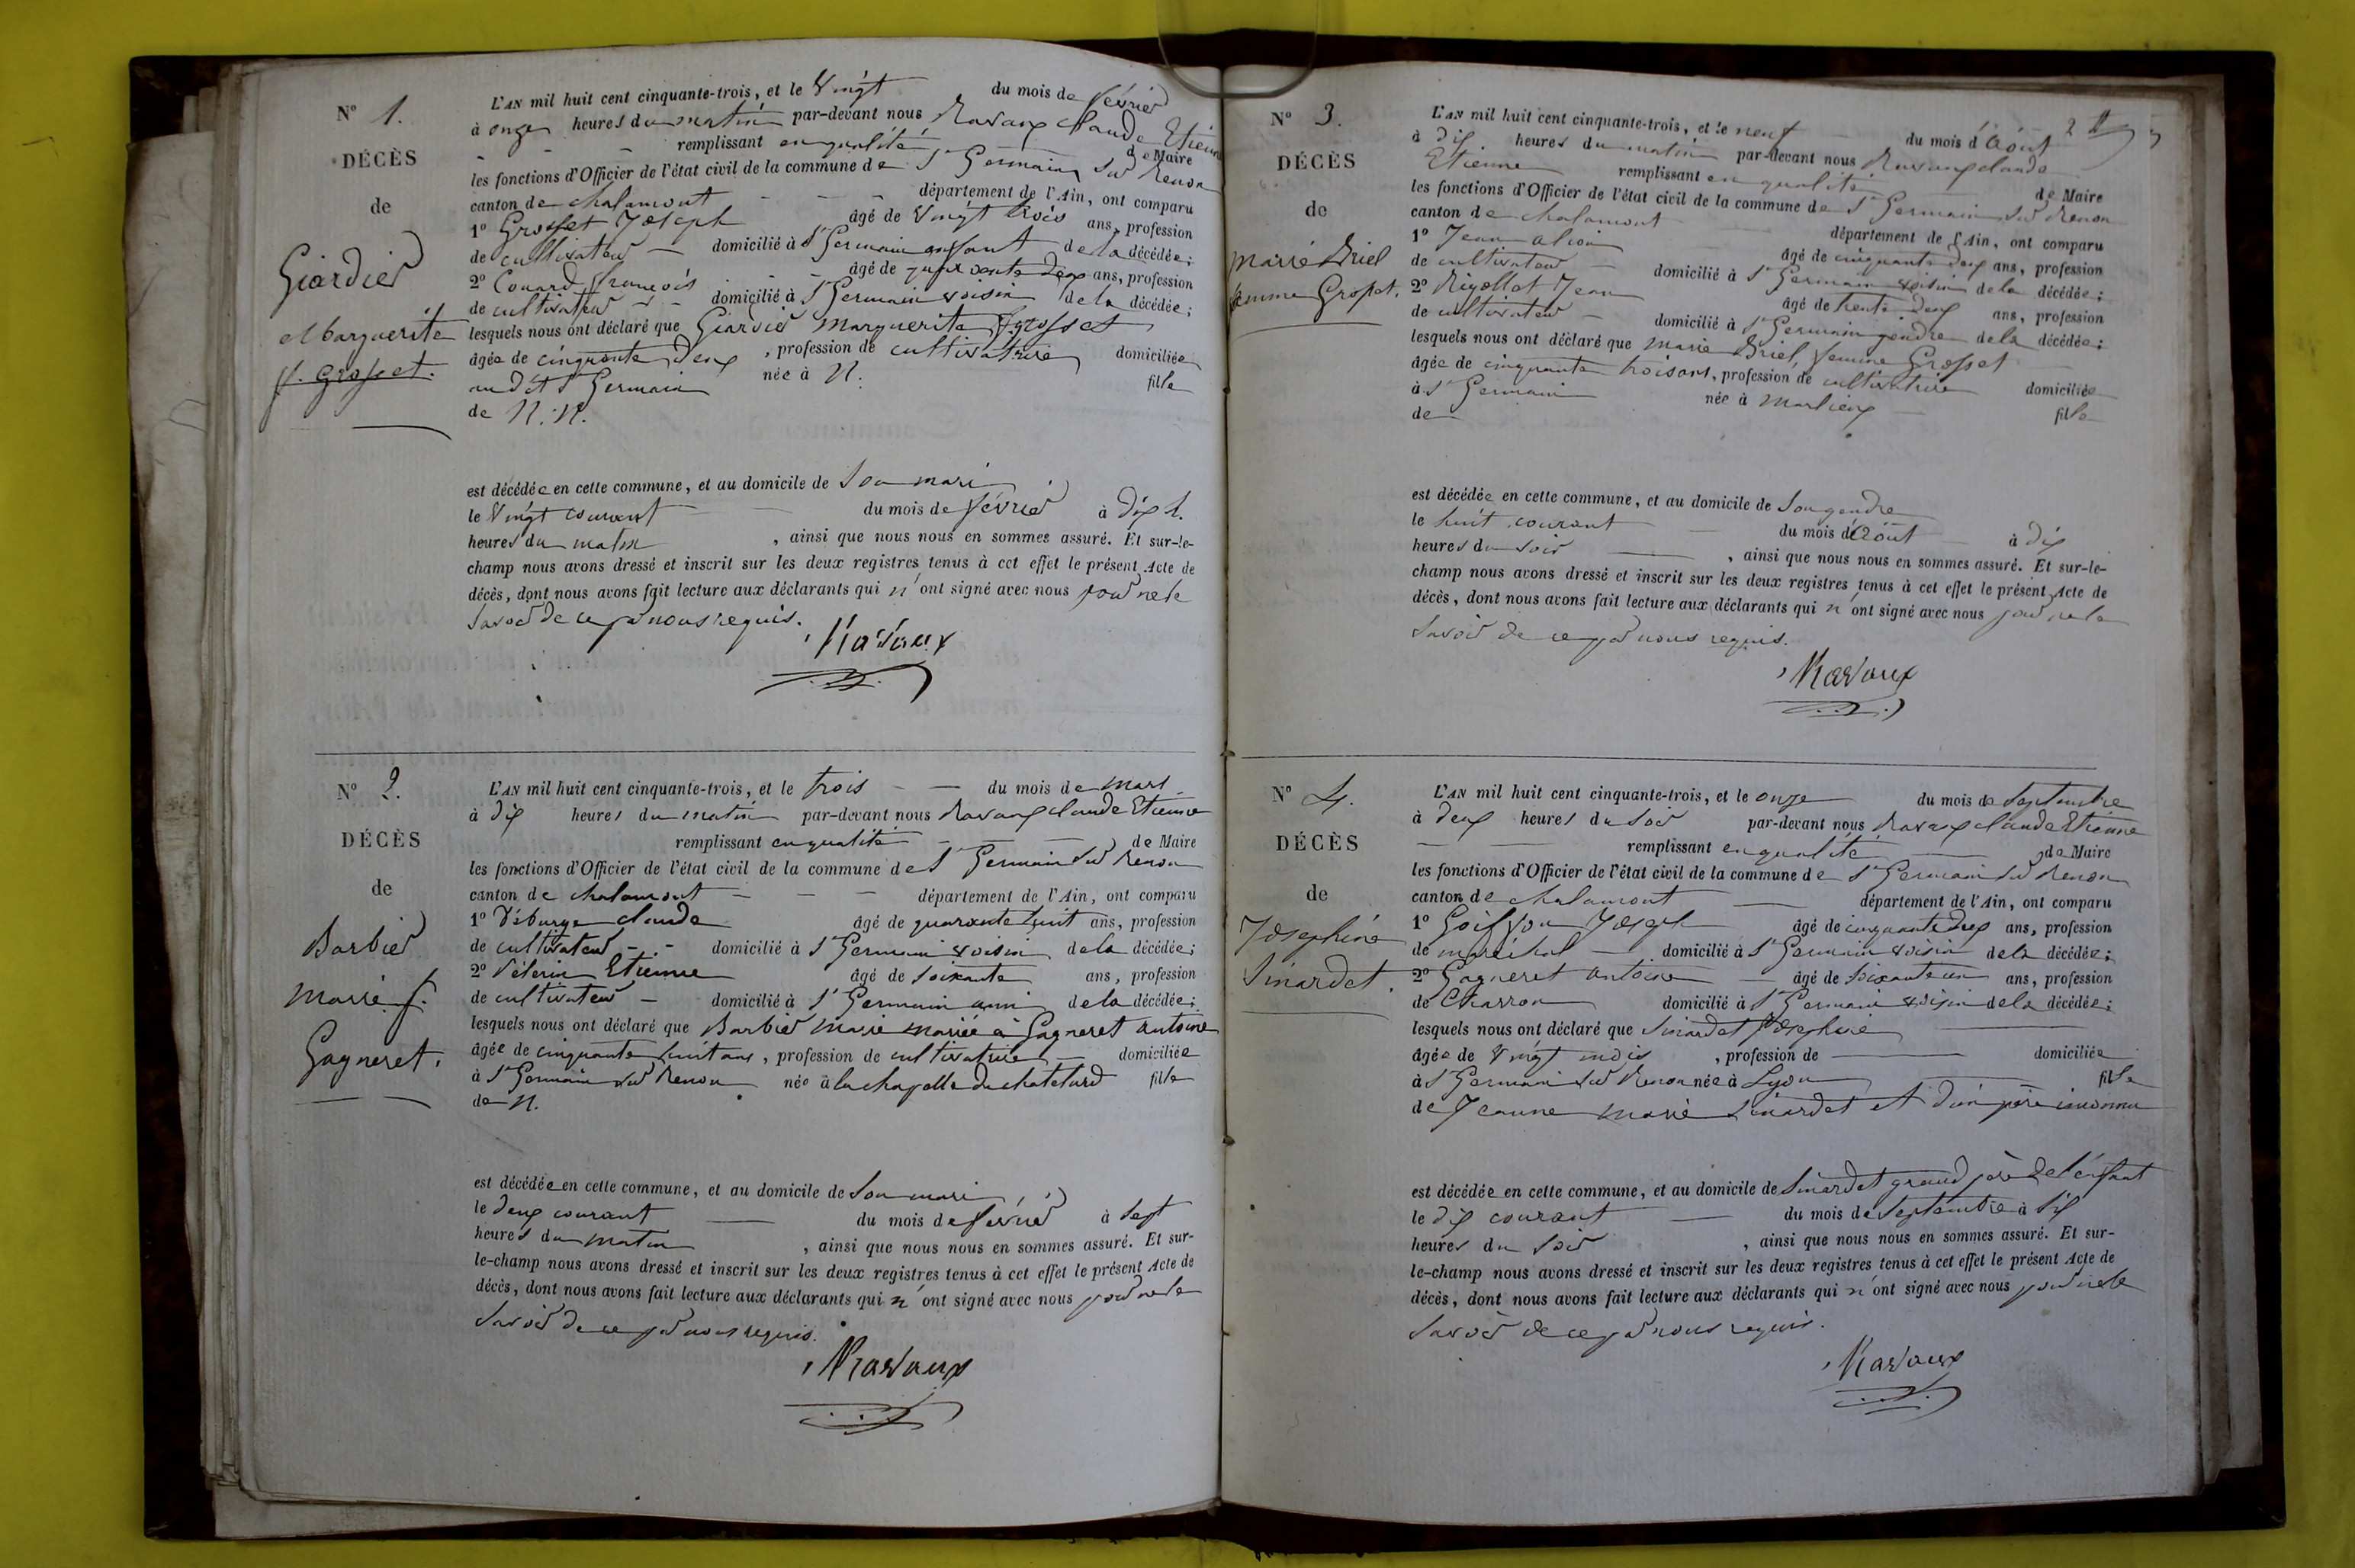 N° 1.
DÉCÈS
de
Giardier
Marguerite
f. Grosset.
L'AN mil huit cent cinquante-trois, et le Vingt du mois de février
à onze heures du matin par-devant nous Ravaux Claude Etienne
remplissant en qualité de Maire
les fonctions d'Officier de l'état civil de la commune de St Germain Sur Renon
canton de chalamont département de l'Ain, ont comparu
1° Grosset Joseph âgé de Vingt trois ans, profession
de cultivateur domicilié à St Germain enfant de la décédée;
2° Couard françois âgé de deux ans, profession
de cultivateur domicilié à St Germain voisin de la décédée;
lesquels nous ont déclaré que Giardier Marguerite f. grosset
âgée de cinquante deux, profession de cultivatrice domiciliée
au dit St Germain née à N. fille
de N. N.
est décédée en cette commune, et au domicile de Son mari
le Vingt courant du mois de février à dix h.
heures du matin, ainsi que nous nous en sommes assuré. Et sur-le-
champ nous avons dressé et inscrit sur les deux registres tenus à cet effet le présent Acte de
décès, dont nous avons fait lecture aux déclarants qui n'ont signé avec nous pour ne le
Savoir de ce par nous requis.
Ravaux
N° 2.
DÉCÈS
de
Barbier
Marie f.
Gagneret.
L'AN mil huit cent cinquante-trois, et le trois du mois de Mars
à dix heures du matin par-devant nous Ravaux claude Etienne
remplissant en qualité de Maire
les fonctions d'Officier de l'état civil de la commune de St Germain Sur Renon
canton de chalamont département de l'Ain, ont comparu
1° Déburge claude âgé de quarante huit ans, profession
de cultivateur domicilié à St Germain voisin de la décédée;
2° Pélerin Etienne âgé de Soixante ans, profession
de cultivateur domicilié à St Germain ami de la décédée;
lesquels nous ont déclaré que Barbier Marie mariée à Gagneret antoine
âgée de cinquante huit ans, profession de cultivatrice domiciliée
à St Germain Sur Renon née à la chapelle du chatelard fille
de N.
est décédée en cette commune, et au domicile de Son mari
le deux courant du mois de février à Sept
heures du matin, ainsi que nous nous en sommes assuré. Et sur-
le-champ nous avons dressé et inscrit sur les deux registres tenus à cet effet le présent Acte de
décès, dont nous avons fait lecture aux déclarants qui n'ont signé avec nous pour ne le
Savoir de ce par nous requis.
Ravaux
N° 3.
DÉCÈS
de
Marie Briel
femme Grosset.
L'AN mil huit cent cinquante-trois, et le neuf du mois d'Août
à dix heures du matin par-devant nous Ravaux claude
Etienne remplissant en qualité de Maire
les fonctions d'Officier de l'état civil de la commune de St Germain Sur Renon
canton de chalamont département de l'Ain, ont comparu
1° Jean âgé de cinquante deux ans, profession
de cultivateur domicilié à St Germain voisin de la décédée;
2° Rigollet Jean âgé de trente deux ans, profession
de cultivateur domicilié à St Germain gendre de la décédée;
lesquels nous ont déclaré que Marie Briel, femme Grosset
âgée de cinquante trois ans, profession de cultivatrice domiciliée
à St Germain née à Marlieux fille
de
est décédée en cette commune, et au domicile de Son gendre
le huit courant du mois d'Août à dix
heures du Soir, ainsi que nous nous en sommes assuré. Et sur-le-
champ nous avons dressé et inscrit sur les deux registres tenus à cet effet le présent Acte de
décès, dont nous avons fait lecture aux déclarants qui n'ont signé avec nous pour ne le
Savoir de ce par nous requis.
Ravaux
N° 4.
DÉCÈS
de
Josephine
Sinardet.
L'AN mil huit cent cinquante-trois, et le onze du mois de Septembre
à deux heures du Soir par-devant nous Ravaux claude Etienne
remplissant en qualité de Maire
les fonctions d'Officier de l'état civil de la commune de St Germain Sur Renon
canton de chalamont département de l'Ain, ont comparu
1° Goiffon Joseph âgé de cinquante deux ans, profession
de maréchal domicilié à St Germain voisin de la décédée;
2° Gagneret antoine âgé de Soixante un ans, profession
de Charron domicilié à St Germain voisin de la décédée;
lesquels nous ont déclaré que Sinardet Josephine
âgée de Vingt mois, profession de domiciliée
à St Germain Sur Renon née à Lyon fille
de Jeanne Marie Sinardet et d'un père inconnu
est décédée en cette commune, et au domicile de Sinardet grand père de l'enfant
le dix courant du mois de Septembre à Six
heures du Soir, ainsi que nous nous en sommes assuré. Et sur-
le-champ nous avons dressé et inscrit sur les deux registres tenus à cet effet le présent Acte de
décès, dont nous avons fait lecture aux déclarants qui n'ont signé avec nous pour ne le
Savoir de ce par nous requis.
Ravaux